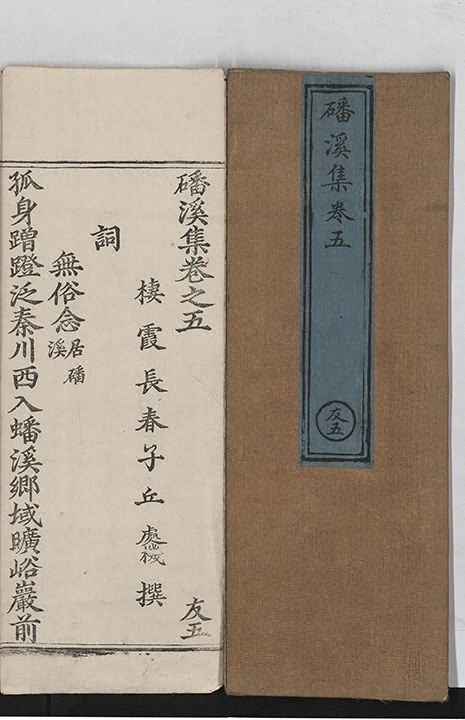 磻溪集卷五
友五
磻溪集卷之五
友五
棲霞長春子丘處機撰
詞
無俗念居磻溪
孤身蹭蹬泛秦川西入蟠溪鄉域曠峪巖前